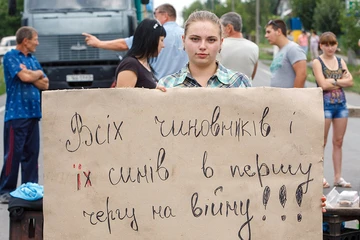 Всіх чиновників і
їх синів в першу
чергу на війну!!!